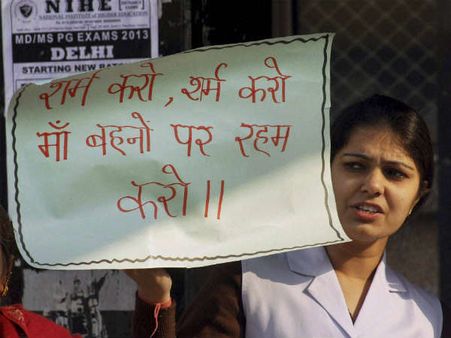 NIHE
NATIONAL INSTITUTE OF HIGHER EDUCATION
MD/MS PG EXAMS 2013
DELHI
STARTING NEW
शर्म करो , शर्म करो
माँ बहनो पर रहम
करो ।।